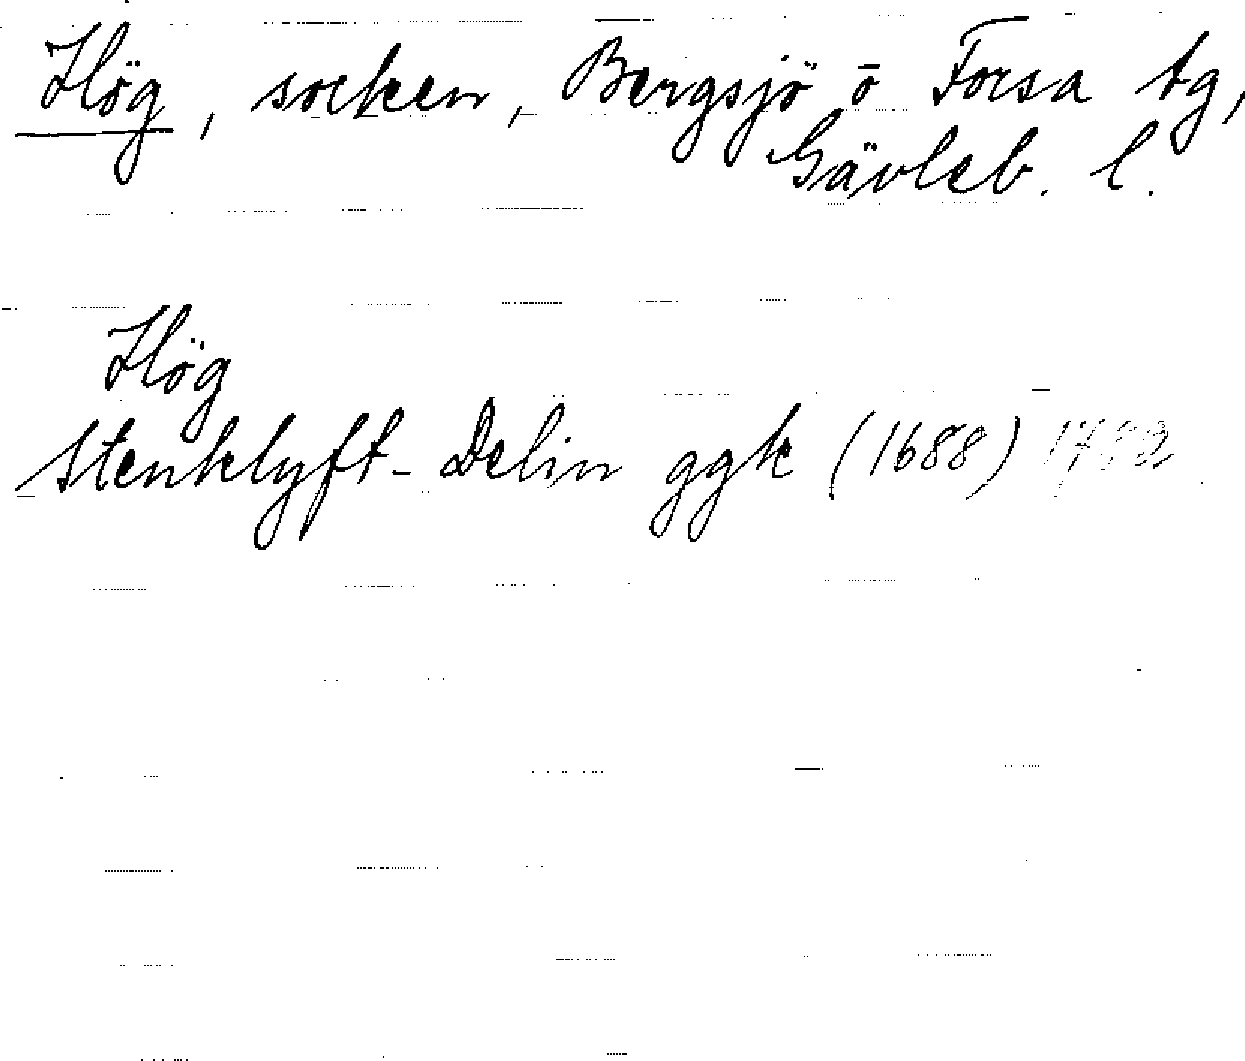 Hög, socken, Bergsjö o Forsa tg,
Gävleb. l.
Hög
Stenklyft- Delin ggk (1688)